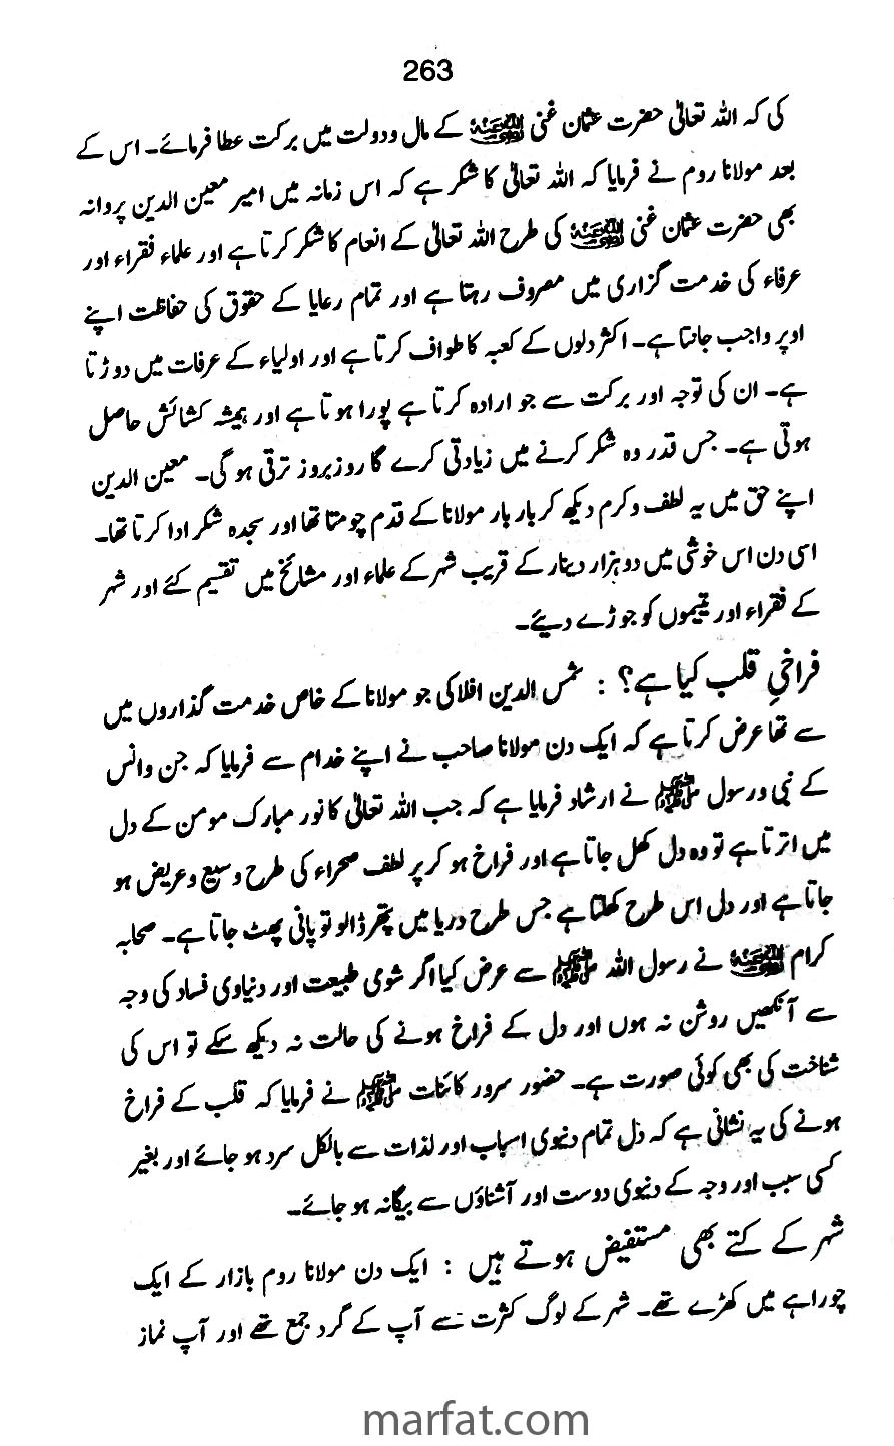 263
کی کہ اللہ تعالیٰ حضرت عثمان غنی رضی اللہ عنہ کے مال و دولت میں برکت عطا فرمائے۔ اس کے
بعد مولانا روم نے فرمایا کہ اللہ تعالیٰ کا شکر ہے کہ اس زمانہ میں امیر معین الدین پروانہ
بھی حضرت عثمان غنی رضی اللہ عنہ کی طرح اللہ تعالیٰ کے انعام کا شکر کرتا ہے اور علماء فقراء اور
عرفاء کی خدمت گزاری میں مصروف رہتا ہے اور تمام رعایا کے حقوق کی حفاظت اپنے
اوپر واجب جانتا ہے۔ اکثر دلوں کے کعبہ کا طواف کرتا ہے اور اولیاء کے عرفات میں دوڑتا
ہے۔ ان کی توجہ اور برکت سے جو ارادہ کرتا ہے پورا ہوتا ہے اور ہمیشہ کشائش حاصل
ہوتی ہے۔ جس قدر وہ شکر کرنے میں زیادتی کرے گا روز بروز ترقی ہو گی۔ معین الدین
اپنے حق میں یہ لطف و کرم دیکھ کر بار بار مولانا کے قدم چومتا تھا اور سجدہ شکر ادا کرتا تھا۔
اسی دن اس خوشی میں دو ہزار دینار کے قریب شہر کے علماء اور مشائخ میں تقسیم کئے اور شہر
کے فقراء اور یتیموں کو جوڑے دیئے۔
فراخیِ قلب کیا ہے؟ : شمس الدین افلاکی جو مولانا کے خاص خدمت گذاروں میں
سے تھا عرض کرتا ہے کہ ایک دن مولانا صاحب نے اپنے خدام سے فرمایا کہ جن و انس
کے نبی و رسول ﷺ نے ارشاد فرمایا ہے کہ جب اللہ تعالیٰ کا نور مبارک مومن کے دل
میں اترتا ہے تو وہ دل کھل جاتا ہے اور فراخ ہو کر پر لطف صحراء کی طرح وسیع و عریض ہو
جاتا ہے اور دل اس طرح کھلتا ہے جس طرح دریا میں پتھر ڈالو تو پانی پھٹ جاتا ہے۔ صحابہ
کرام رضی اللہ عنہم نے رسول اللہ ﷺ سے عرض کیا اگر شومی طبیعت اور دنیاوی فساد کی وجہ
سے آنکھیں روشن نہ ہوں اور دل کے فراخ ہونے کی حالت نہ دیکھ سکے تو اس کی
شناخت کی بھی کوئی صورت ہے۔ حضور سرور کائنات ﷺ نے فرمایا کہ قلب کے فراخ
ہونے کی یہ نشانی ہے کہ دل تمام دنیوی اسباب اور لذات سے بالکل سرد ہو جائے اور بغیر
کسی سبب اور وجہ کے دنیوی دوست اور آشناؤں سے بیگانہ ہو جائے۔
شہر کے کتے بھی مستفیض ہوتے ہیں : ایک دن مولانا روم بازار کے ایک
چوراہے میں کھڑے تھے۔ شہر کے لوگ کثرت سے آپ کے گرد جمع تھے اور آپ نماز
marfat.com